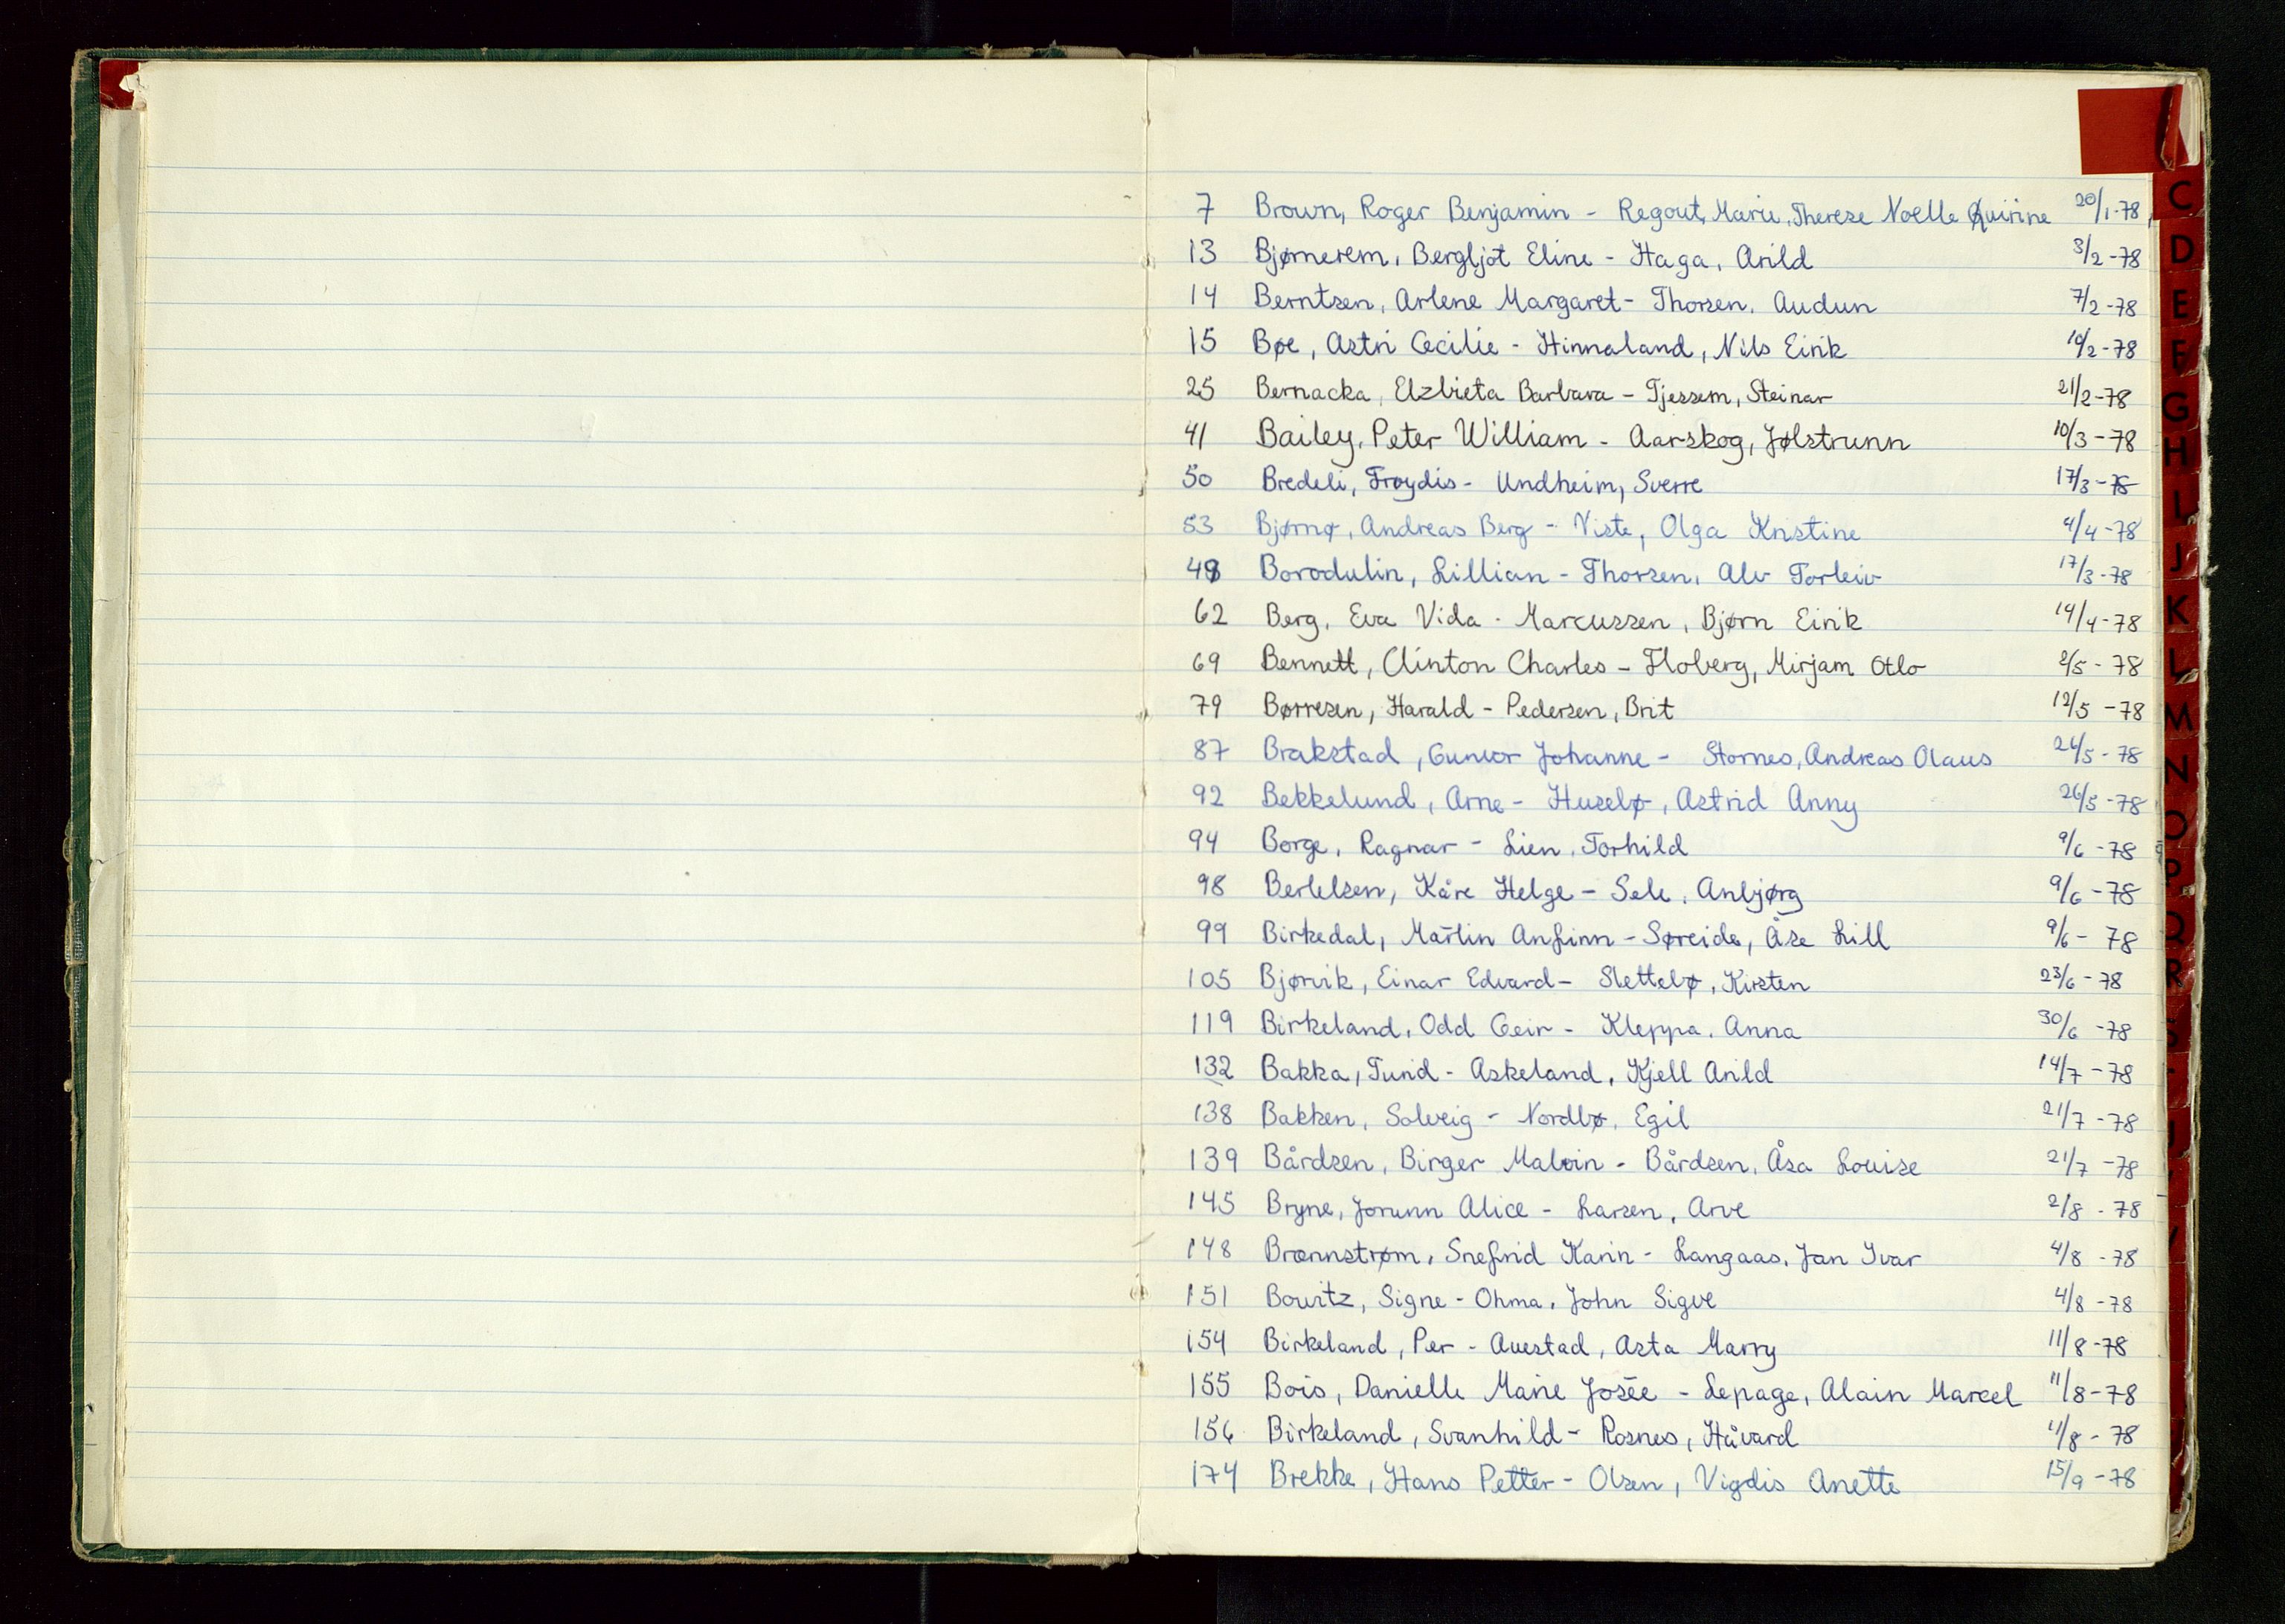 7 Brown, Roger Benjamin - Regout, Marie, Therese Noelle Quirine 20/1-78
13 Bjørnerem, Bergljot Eline - Haga, Arild 3/2-78
14 Berntsen, Arlene Margaret - Thorsen, Audun 7/2-78
15 Bøe, Astri Cecilie - Hinnaland, Nils Eirik 10/2-78
25 Bernacka, Elzbieta Barbara - Tjessem, Steinar 21/2-78
41 Bailey, Peter William - Aarskog, Jølstrunn 10/3-78
50 Bredeli, Frøydis - Undheim, Sverre 17/3-78
53 Bjørnø, Andreas Berg - Viste, Olga Kristine 4/4-78
49 Borodulin, Lillian - Thorsen, Alv Torleiv 17/3-78
62 Berg, Eva Vida - Marcussen, Bjørn Eirik 14/4-78
69 Bennett, Clinton Charles - Floberg, Mirjam Otlo 2/5-78
79 Børresen, Harald - Pedersen, Brit 12/5-78
87 Brakstad, Gunvor Johanne - Stornes, Andreas Olaus 26/5-78
92 Bekkelund, Arne - Huselø, Astrid Anny 26/5-78
94 Borge, Ragnar - Lien, Torhild 9/6-78
98 Bertelsen, Kåre Helge - Sele, Anbjørg 9/6-78
99 Birkedal, Martin Anfinn - Søreide, Åse Lill 9/6-78
105 Bjørvik, Einar Edvard - Slettebø, Kirsten 23/6-78
119 Birkeland, Odd Geir - Kleppa, Anna 30/6-78
132 Bakka, Turid - Askeland, Kjell Arild 14/7-78
138 Bakken, Solveig - Nordbø, Egil 21/7-78
139 Bårdsen, Birger Malvin - Bårdsen, Åsa Louise 21/7-78
145 Bryne, Jorunn Alice - Larsen, Arve 2/8-78
148 Brannstrøm, Snefrid Karin - Langaas, Jan Ivar 4/8-78
151 Bowitz, Signe - Ohma, John Sigve 4/8-78
154 Birkeland, Per - Auestad, Asta Marry 11/8-78
155 Bois, Danielle Marie Josée - Lepage, Alain Marcel 11/8-78
156 Birkeland, Svanhild - Rosnes, Håvard 11/8-78
174 Brekke, Hans Petter - Olsen, Vigdis Anette 15/9-78
C
D
E
F
G
H
I
J
K
L
M
N
O
P
Q
R
S